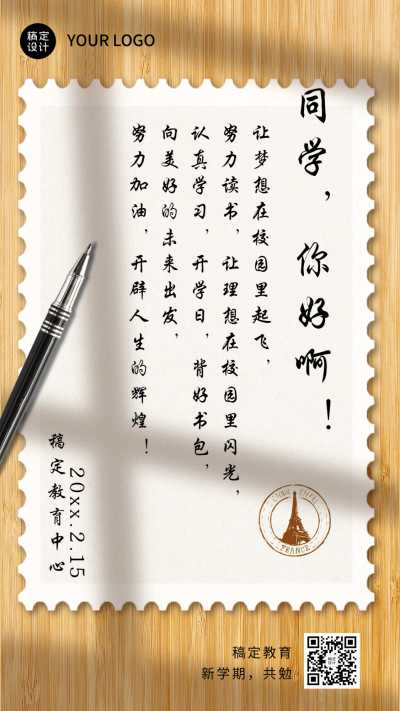 稿定
设计
YOUR LOGO
同学，你好啊！
让梦想在校园里起飞，
努力读书，让理想在校园里闪光，
认真学习，开学日，背好书包，
向美好的未来出发，
努力加油，开辟人生的辉煌！
20xx.2.15
稿定教育中心
FRANCE
稿定教育
新学期，共勉